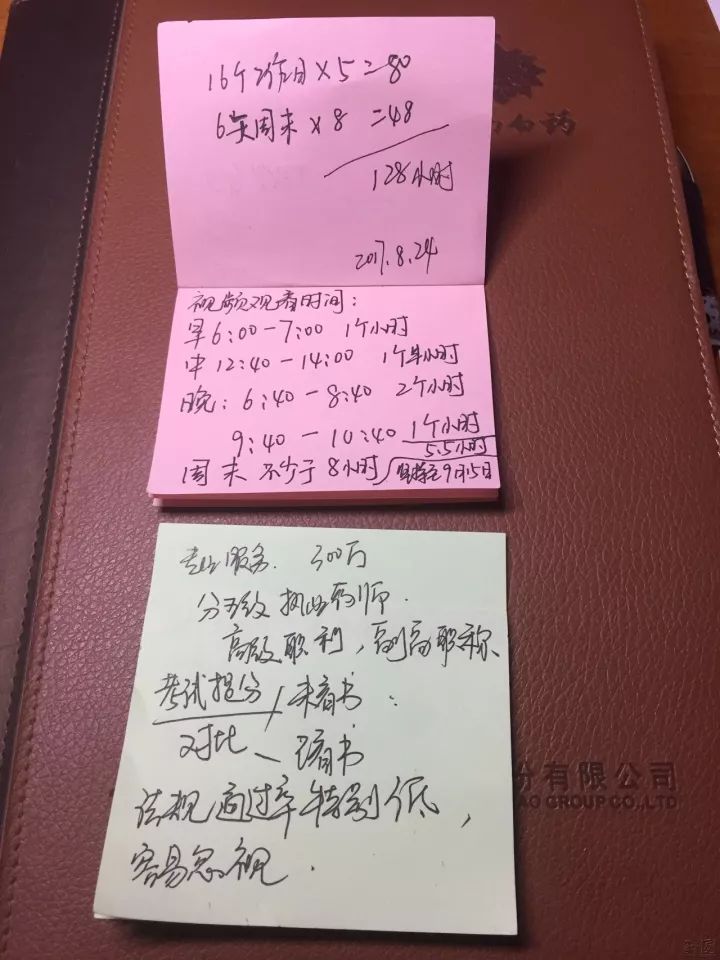 16个工作日×5=80
6天周末×8=48
128小时
2017.8.24
视频观看时间:
早6:00-7:00 1个小时
中12:40-14:00 1个半小时
晚:6:40-8:40 2个小时
9:40-10:40 1个小时
5.5小时
周末不少于8小时 坚持至9月15日
专业服务. 500万
分五级 执业药师.
高级职利,副高职称
考试提分/未看书:
对比 看书
法规通过率特别低,
容易忽视.
白药
份有限公司
AO GROUP CO.,LTD